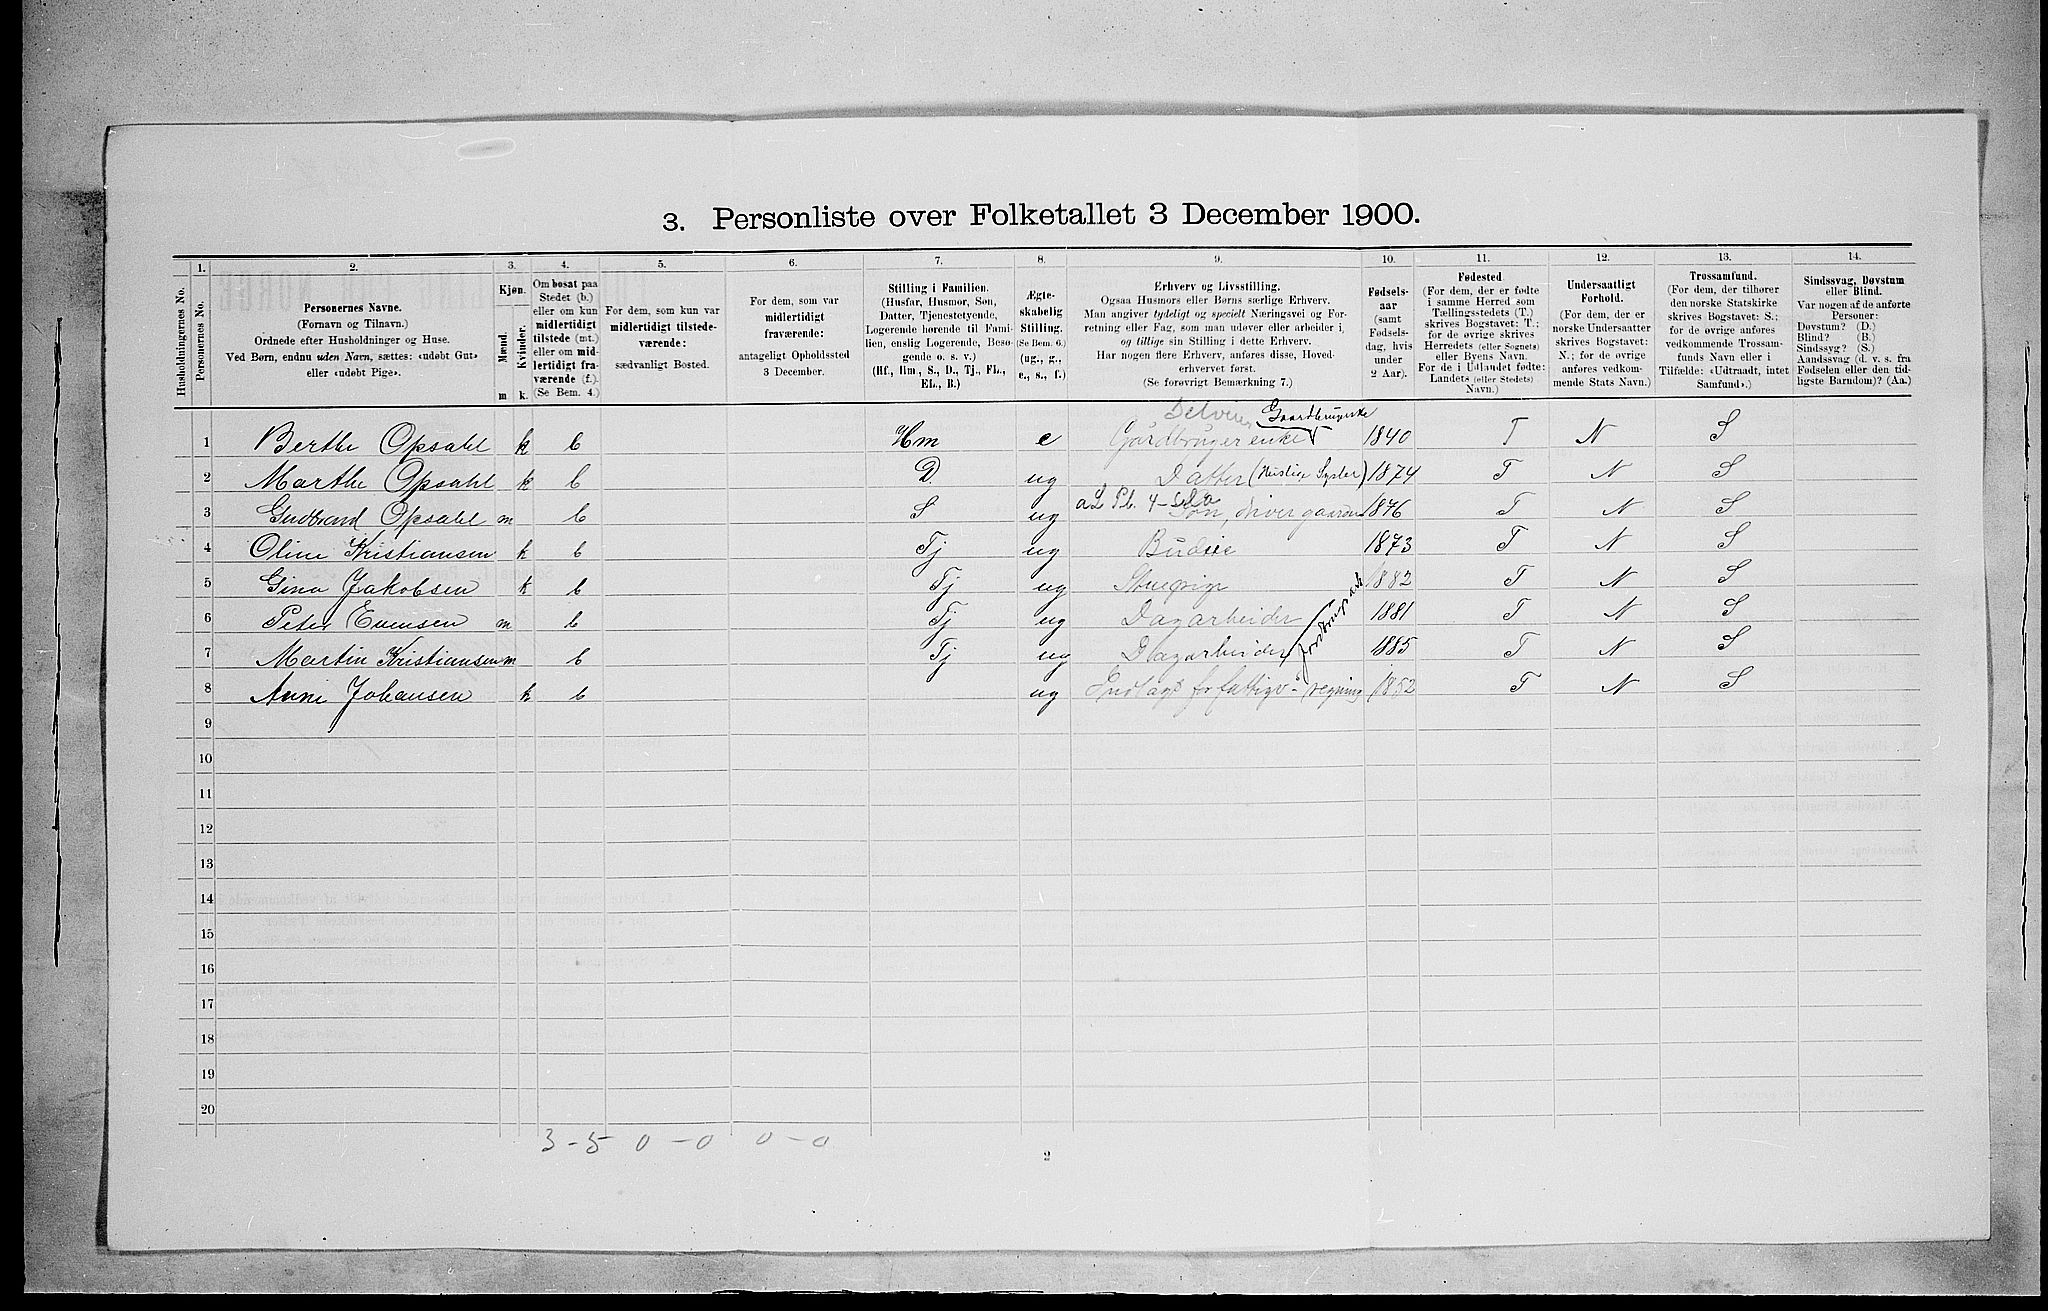 3. Personliste over Folketallet 3 December 1900.
Husholdningernes No.
1.
Personernes No.
2.
Personernes Navne.
(Fornavn og Tilnavn.)
Ordnede efter Husholdninger og Huse.
Ved Børn, endnu uden Navn, sættes: «udøbt Gut»
eller «udøbt Pige».
3.
Kjøn.
Mænd.
Kvinder.
m k.
4.
Om bosat paa
Stedet (b.)
eller om kun
midlertidigt
tilstede (mt.)
eller om mid-
lertidigt fra-
værende (f.).
(Se Bem. 4.)
5.
For dem, som kun var
midlertidigt tilstede-
værende:
sædvanligt Bosted.
6.
For dem, som var
midlertidigt
fraværende:
antageligt Opholdssted
3 December.
7.
Stilling i Familien.
(Husfar, Husmor, Søn,
Datter, Tjenestetyende,
Logerende hørende til Fami-
lien, enslig Logerende, Besø-
gende o. s. v.)
(Hf., Hm., S., D., Tj., FL.,
EL., B.)
8.
Ægte-
skabelig
Stilling.
(Se Bem. 6.)
(ug., g.,
e., s., f.)
9.
Erhverv og Livsstilling.
Ogsaa Husmors eller Børns særlige Erhverv.
Man angiver tydeligt og specielt Næringsvei og For-
retning eller Fag, som man udøver eller arbeider i,
og tillige sin Stilling i dette Erhverv.
Har nogen flere Erhverv, anføres disse, Hoved-
erhvervet først.
(Se forøvrigt Bemærkning 7.)
10.
Fødsels-
aar
(samt
Fødsels-
dag, hvis
under
2 Aar).
11.
Fødested.
(For dem, der er fødte
i samme Herred som
Tællingsstedets (T.)
skrives Bogstavet: T.;
for de øvrige skrives
Herredets (eller Sognets)
eller Byens Navn.
For de i Udlandet fødte:
Landets (eller Stedets)
Navn.)
12.
Undersaatligt
Forhold.
(For dem, der er
norske Undersaatter
skrives Bogstavet:
N.; for de øvrige
anføres vedkom-
mende Stats Navn.)
13.
Trossamfund.
(For dem, der tilhører
den norske Statskirke
skrives Bogstavet: S.;
for de øvrige anføres
vedkommende Trossam-
funds Navn eller i
Tilfælde: «Udtraadt, intet
Samfund».)
14.
Sindssvag, Døvstum
eller Blind.
Var nogen af de anførte
Personer:
Døvstum? (D.)
Blind? (B.)
Sindssyg? (S.)
Aandssvag (d. v. s. fra
Fødselen eller den tid-
ligste Barndom)? (Aa.)
Gaardbrugerske
1 Berthe Opsahl k b Hm e Gårdbrugerenke 1840 T N S
2 Marthe Opsahl k b D ug Datter (Huslige Sysler) 1874 T N S
3 Gudbrand Opsahl m b S ug Søn, driver gaarden 1876 T N S
4 Oline Kristiansen k b Tj ug Budeie 1873 T N S
5 Gina Jakobsen k b Tj ug Stuepige 1882 T N S
6 Peter Evensen m b Tj ug Dagarbeider 1881 T N S
7 Martin Kristiansen m b Tj ug Dagarbeider 1885 T N S
8 Anne Johansen k b ug Indlagt for fattigv-regning 1852 T N S
9
10
11
12
13
14
15
16
17
18
19
20
3-5 0-0 0-0
2